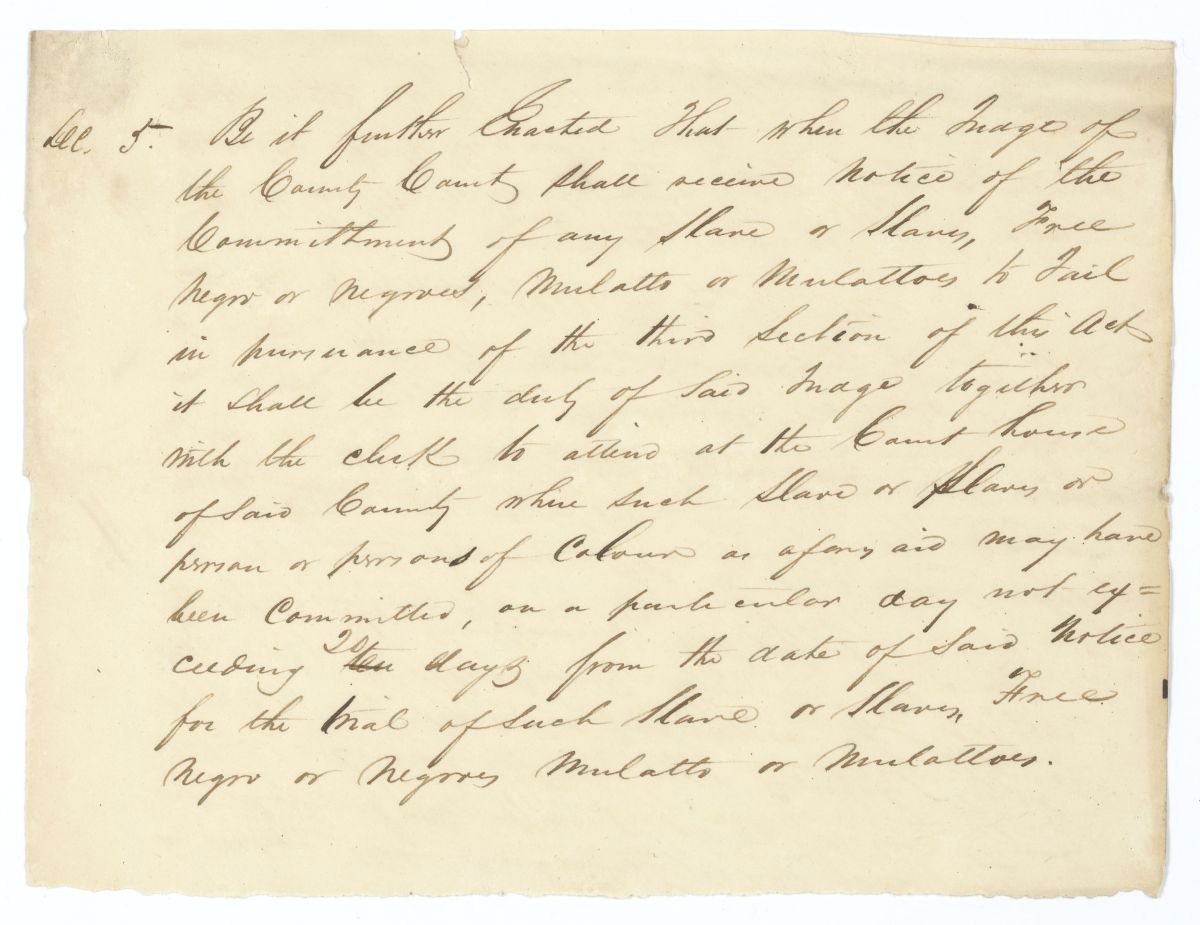 Sec. 5. Be it further Enacted That when the Judge of
the County Court shall receive Notice of the
Committment of any Slave or Slaves, Free
Negro or Negroes, Mulatto or Mulattoes to Jail
in pursuance of the third Section of this Act
it shall be the duty of Said Judge together
with the clerk to attend at the Court house
of Said County where such Slave or Slaves or
person or persons of Colour as aforesaid may have
been Committed, on a particular day not ex=
ceeding 20 ten days from the date of Said Notice
for the trial of such Slave or Slaves, Free
Negro or Negroes Mulatto or Mulattoes.